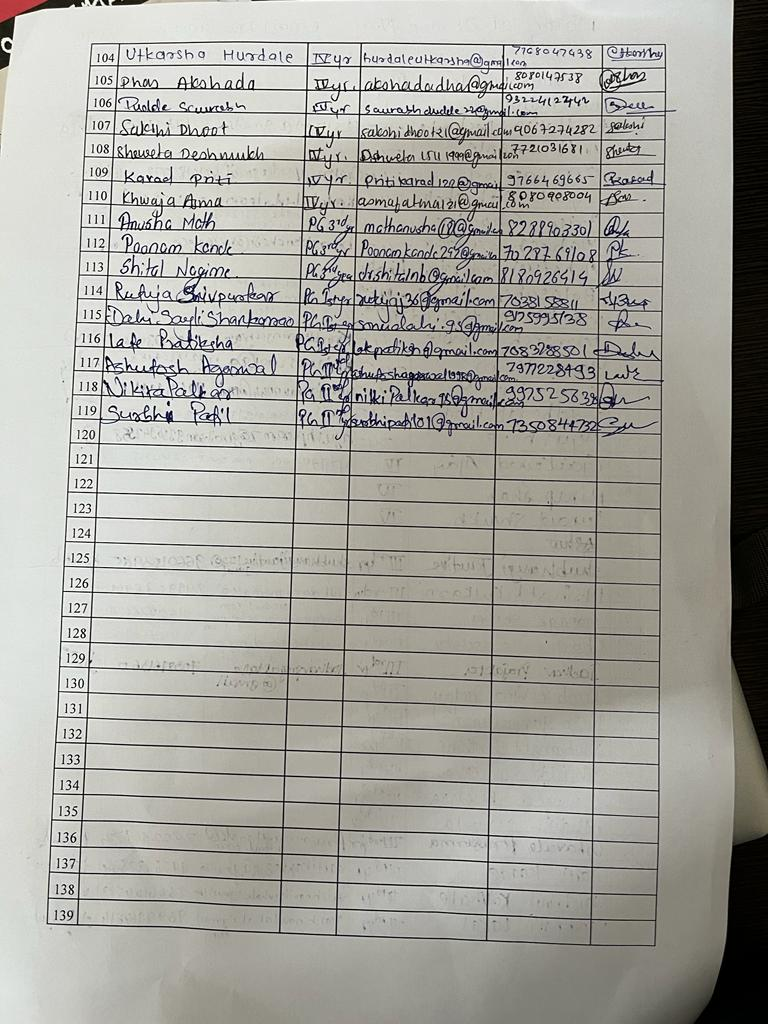 104 Utkarsha Hurdale IV yr hurdaleutkarsha@gmail.com 7768047438
105 Dhas Akshada IV yr. akshadadha@gmail.com 8080147538
106 Dudde Saurabh IV yr saurabhdudde22@gmail.com 9322412442
107 Sakshi Dhoot IV yr sakshidhoot21@gmail.com 9067274282 Sakshi
108 Shweta Deshmukh IV yr. Dshweta1511199@gmail.com 7721031681
109 Karad Priti IV yr. pritikarad120@gmail 9766469665
110 Khwaja Asma IV yr. asmafatma121@gmail.com 8080908004
111 Anusha Math PG 3rd yr mathanusha18@gmail.com 8288903301
112 Poonam Kande PG 3rd yr Poonamkande297@gmail.com 7028769108
113 Shital Nagime PG 3rd yr dr.shitalnb@gmail.com 8180926414
114 Rutuja PG Ist yr rutujaj36@gmail.com 7038158811
115 Dahi Sayli Shankarrao PG Ist yr @gmail.com 975995138
116 Late Pratiksha PG Ist yr latpratiksh@gmail.com 7083288501
117 Ashutosh Agarwal PG IInd yr ashutoshagarwal1998@gmail.com 7972228493
118 Nikita Palkar PG IInd yr nikkiPalkar95@gmail.com 997525638
119 Surbhi Patil PG IInd yr surbhipatil101@gmail.com 7350844732
120
121
122
123
124
125
126
127
128
129
130
131
132
133
134
135
136
137
138
139